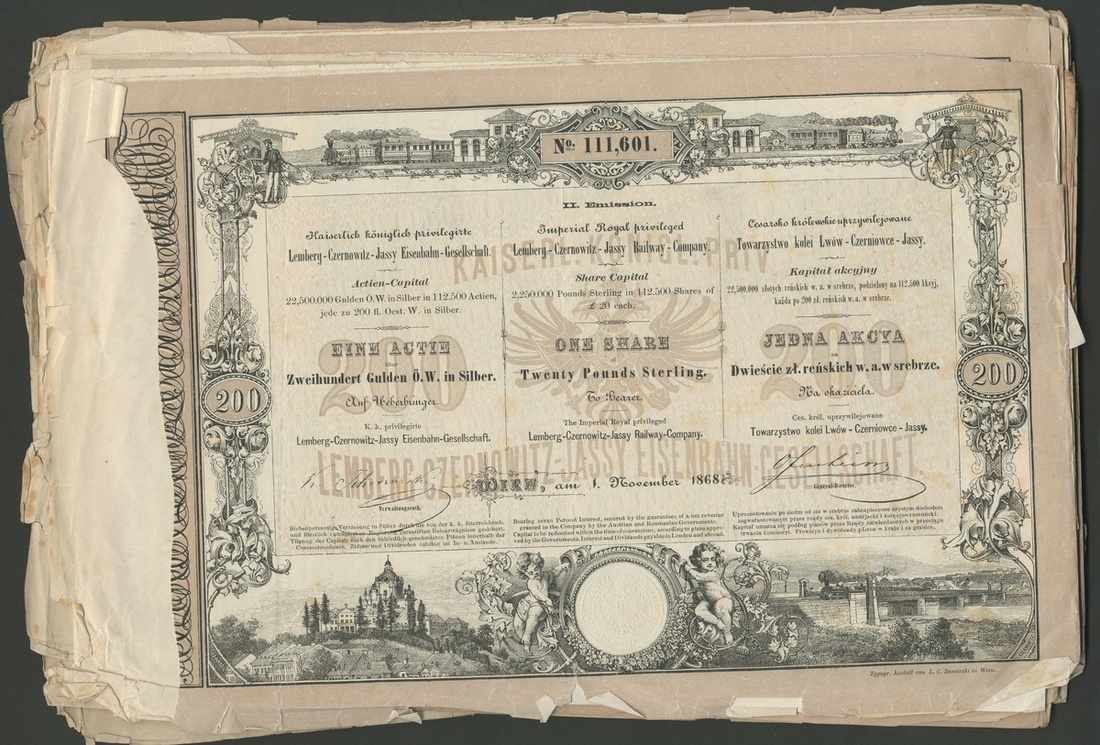 No. 111,601.
II. Emission.
Kaiserlich königlich privilegirte
Lemberg-Czernowitz-Jassy Eisenbahn-Gesellschaft.
Actien-Capital
22,500.000 Gulden Ö.W. in Silber in 112,500 Actien,
jede zu 200 fl. Oest. W. in Silber.
EINE ACTIE
über
Zweihundert Gulden Ö.W. in Silber.
Auf Ueberbringer.
K. k. privilegirte
Lemberg-Czernowitz-Jassy Eisenbahn-Gesellschaft.
Imperial Royal privileged
Lemberg-Czernowitz-Jassy Railway-Company.
Share Capital
2,250.000 Pounds Sterling in 112.500 Shares of
£ 20 each.
ONE SHARE
of
Twenty Pounds Sterling.
To Bearer.
The Imperial Royal privileged
Lemberg-Czernowitz-Jassy Railway-Company.
Cesarsko królewskie uprzywilejowane
Towarzystwo kolei Lwów-Czerniowce-Jassy.
Kapitał akcyjny
22,500.000 złotych reńskich w. a. w srebrze, podzielony na 112.500 Akcyj,
każda po 200 zł. reńskich w. a. w srebrze.
JEDNA AKCYA
na
Dwieście zł. reńskich w. a. w srebrze.
Na okaziciela.
Ces. król. uprzywilejowane
Towarzystwo kolei Lwów-Czerniowce-Jassy.
KAISERL. KÖNIGL. PRIV.
200
200
200
200
LEMBERG-CZERNOWITZ-JASSY EISENBAHN-GESELLSCHAFT.
WIEN, am 1. November 1868
Verwaltungsrath.
General-Director.
Siebenpercentige Verzinsung in Silber durch die von der k. k. österreichisch.
und fürstlich rumänischen Regierung garantirten Reinerträgnisse gesichert.
Tilgung des Capitals nach den behördlich genehmigten Plänen innerhalb der
Concessionsdauer. Zinsen und Dividenden zahlbar im In- u. Auslande.
Bearing seven Percent Interest, secured by the guarantee of a net revenue
granted to the Company by the Austrian and Roumanian Governments.
Capital to be redeemed within the time of concession, according to plans approved
by the Governments. Interest and Dividends payable in London and abroad.
Uprocentowanie po siedm od sta w srebrze zabezpieczone czystym dochodem
zagwarantowanym przez rządy ces. król. austrjacki i książęco-rumuński.
Kapitał umarza się podług planów przez Rządy zatwierdzonych w przeciągu
trwania koncesyi. Prowizya i dywidendy płatne w kraju i za granicą.
Typogr. Anstalt von L. C. Zamarski in Wien.